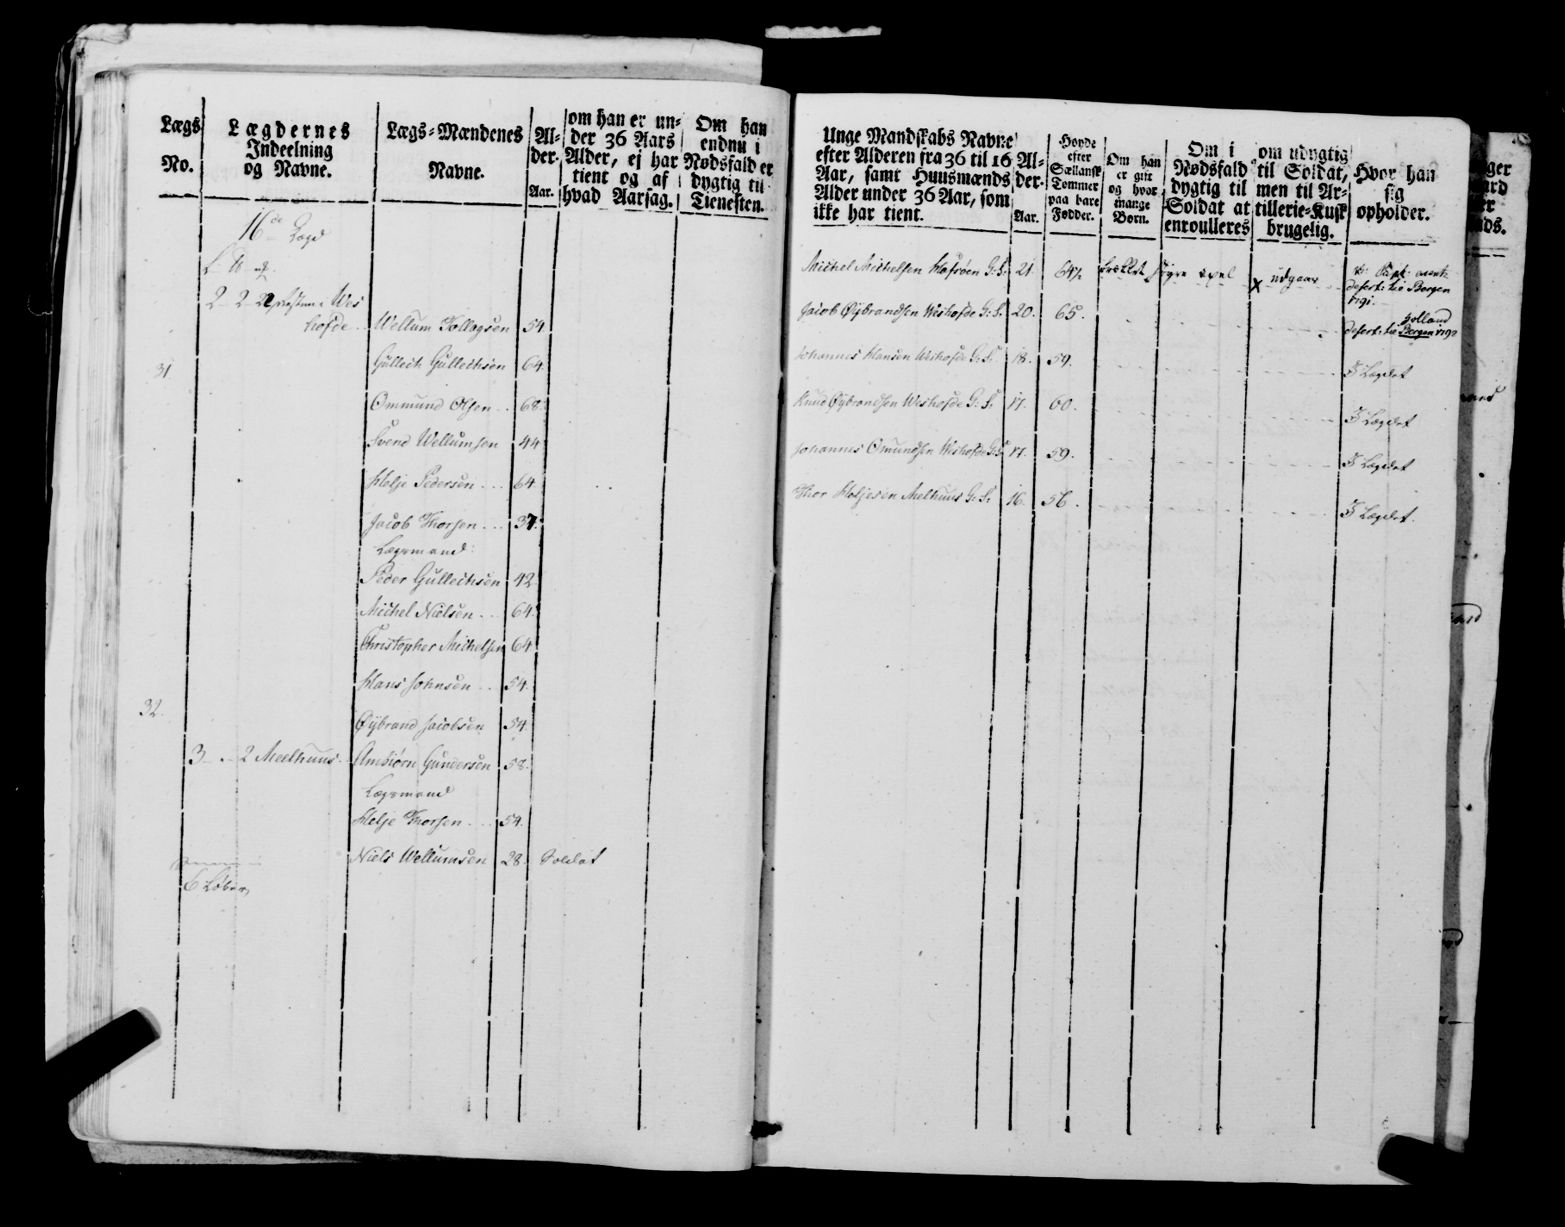 Lægs No.
Lægdernes Indeelning og Navne.
Lægs-Mændenes Navne.
Al-der. Aar.
om han er un-
der 36 Aars
Alder, ej har
tient og af
hvad Aarsag.
Om han
endnu i
Nødsfald er
dygtig til
Tienesten.
16de Lægd
L. ß. qf.
2 - 2 - 22 Westhofde Wellum Tollagsen 54.
31. Gullech Gullechsen 64.
Ommund Olsen 68.
Svend Wellumsen 44
Helje Pedersen 64
Jacob Thorsen 37.
Lægsmand
Peder Gullechsen 42
Michel Nielsen 64
Christopher Michelsen 64
Hans Johnsen 54.
32. Øybrand Jacobsen 54
3 - 2 Meelhuus Ambiørn Gundersen 58.
Lægsmand
Helje Thorsen 54.
Niels Wellumsen 28. Soldat
6 Løber
Unge Mandskabs Navne
efter Alderen fra 36 til 16
Aar, samt Huusmænds
Alder under 36 Aar, som
ikke har tient.
Al-
der.
Aar.
Høyde
efter
Siællansk
Tommer
paa bare
Fødder.
Om han
er gift
og hvor
mange
Børn.
Om i
Nødsfald
dygtig til
Soldat at
enroulleres
om udygtig
til Soldat,
men til Ar-
tillerie-Kusk
brugelig.
Hvor han
sig
opholder.
Michel Michelsen G: S: 21. 64½ X udgaar
desert: til Bergen
1791.
Jacob Øybrandsen Weshofde G: S. 20. 65. Holland
desert: til Bergen 1792
Johannes Hansen Weshofde G: S. 18. 59. I Lægdet
Knud Øybrandsen Weshofde G: S. 17. 60. I Lægdet
Johannes Omundsen Weshofde G: S 17. 59. I Lægdet
Thor Heljesen Melhuus G: S. 16. 56. I Lægdet